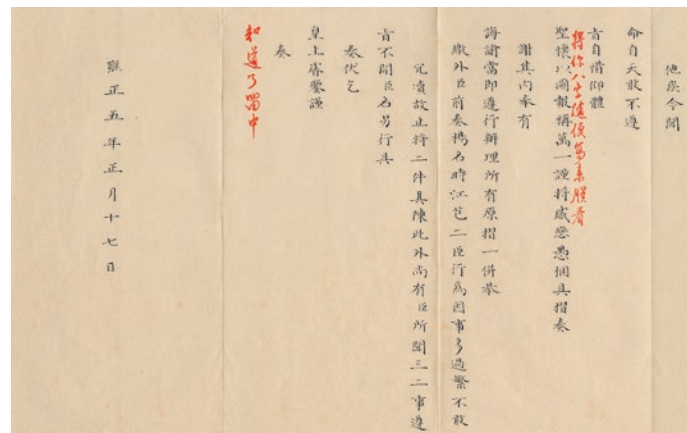 他疾今聞
命自天敢不遵
旨自惜節體
將你八字隨便寫來朕看
聖懷以圖報稱萬一謹將感戀愚悃具摺奏
謝其內奉有
誨諭當即遵行辦理所有原摺一併恭
繳外臣前奏楊名時江芑二臣行為因事多過繁不敢
冗瀆故止將二件具陳此外尚有臣所聞三二事遵
旨不開臣名另行具
奏伏乞
皇上睿鑒謹
奏
知道了留中
雍正五年正月十七日